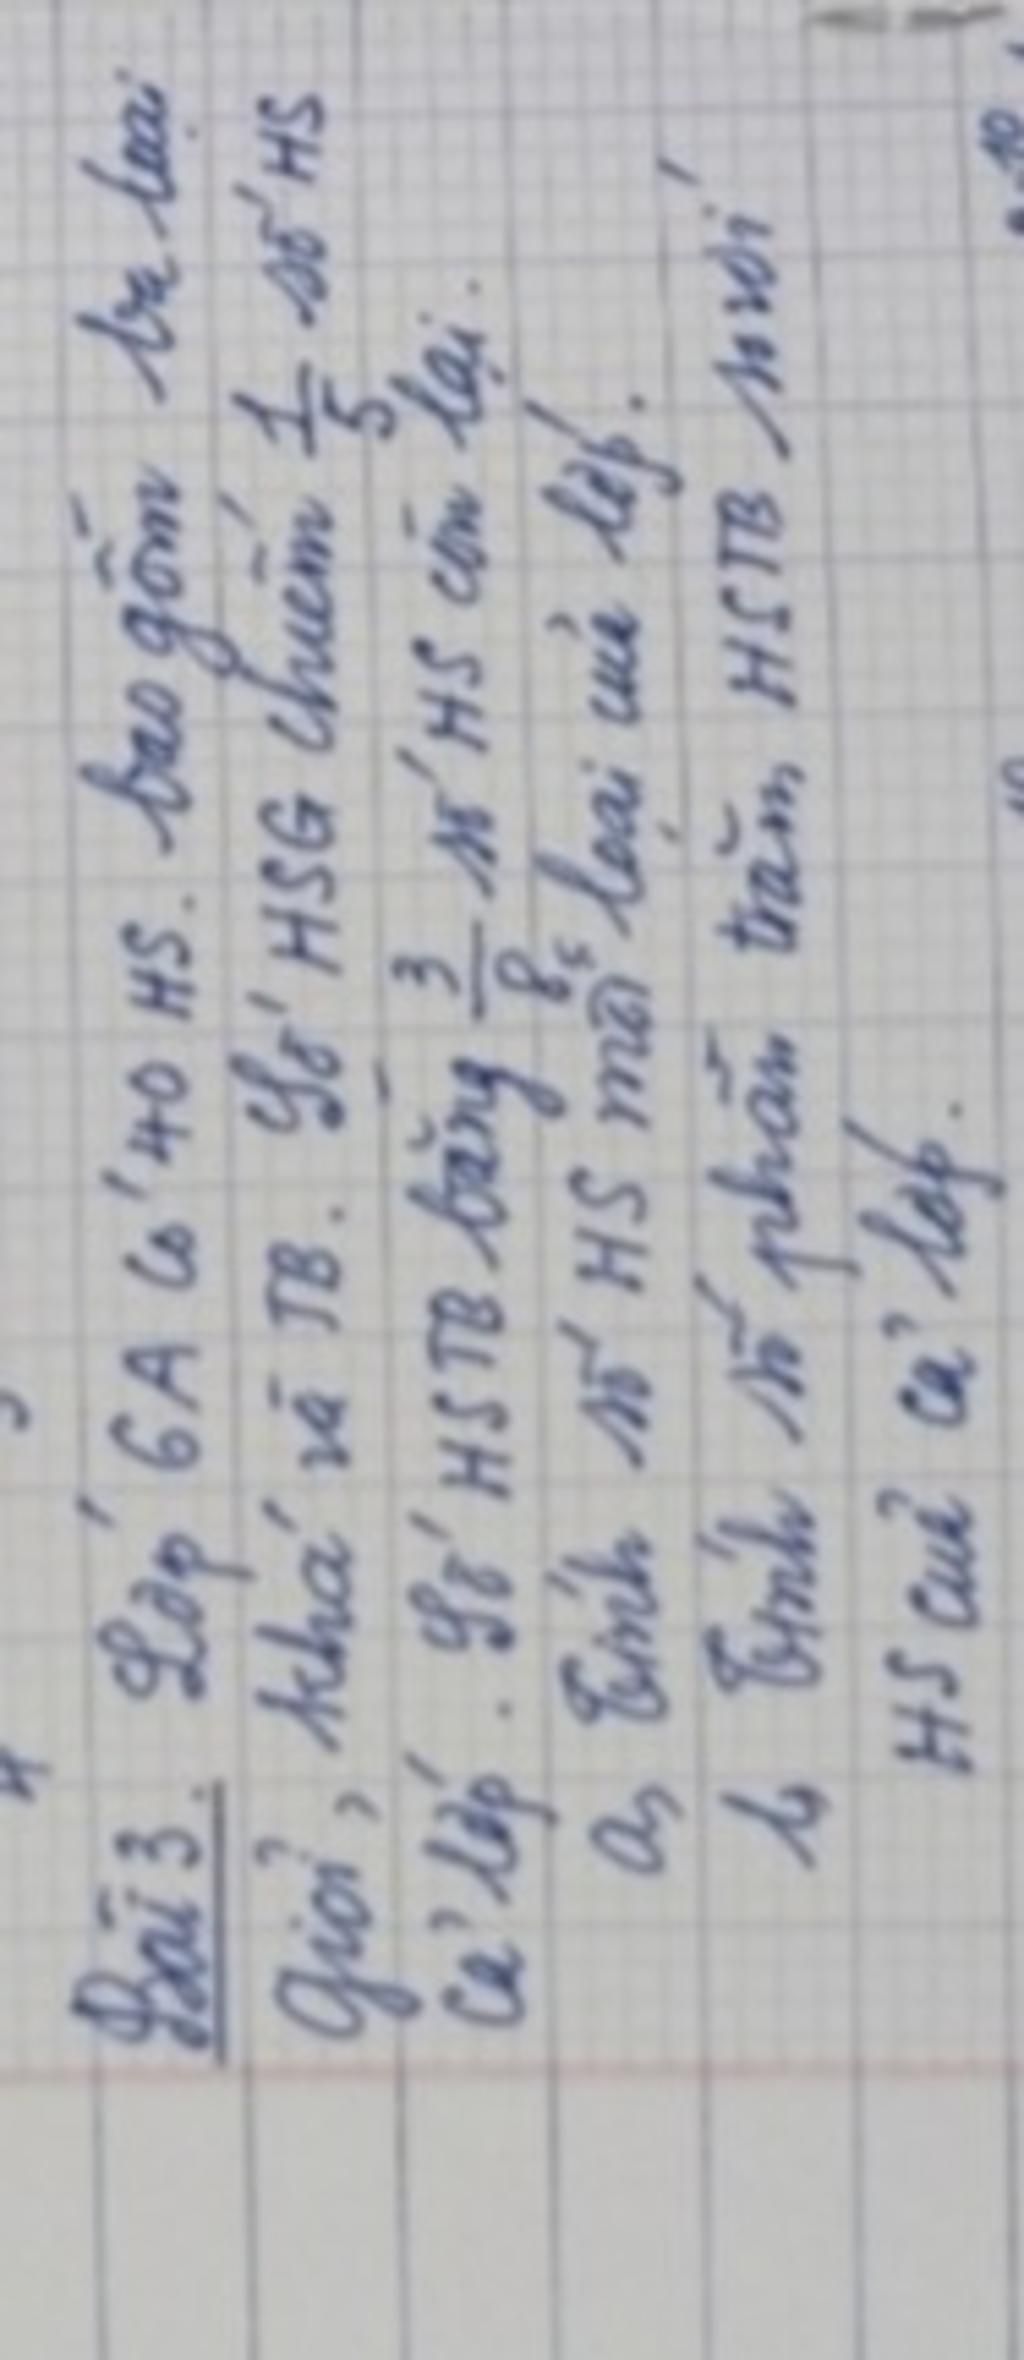 Bài 3. Lớp 6A có 40 HS. bao gồm ba loại
Giỏi, khá và TB. Số HSG chiếm 1/5 số HS
cả lớp. Số HSTB bằng 3/8 số HS còn lại.
a, Tính số HS mỗi loại của lớp.
b, Tính số phần trăm HSTB so với
HS của cả lớp.